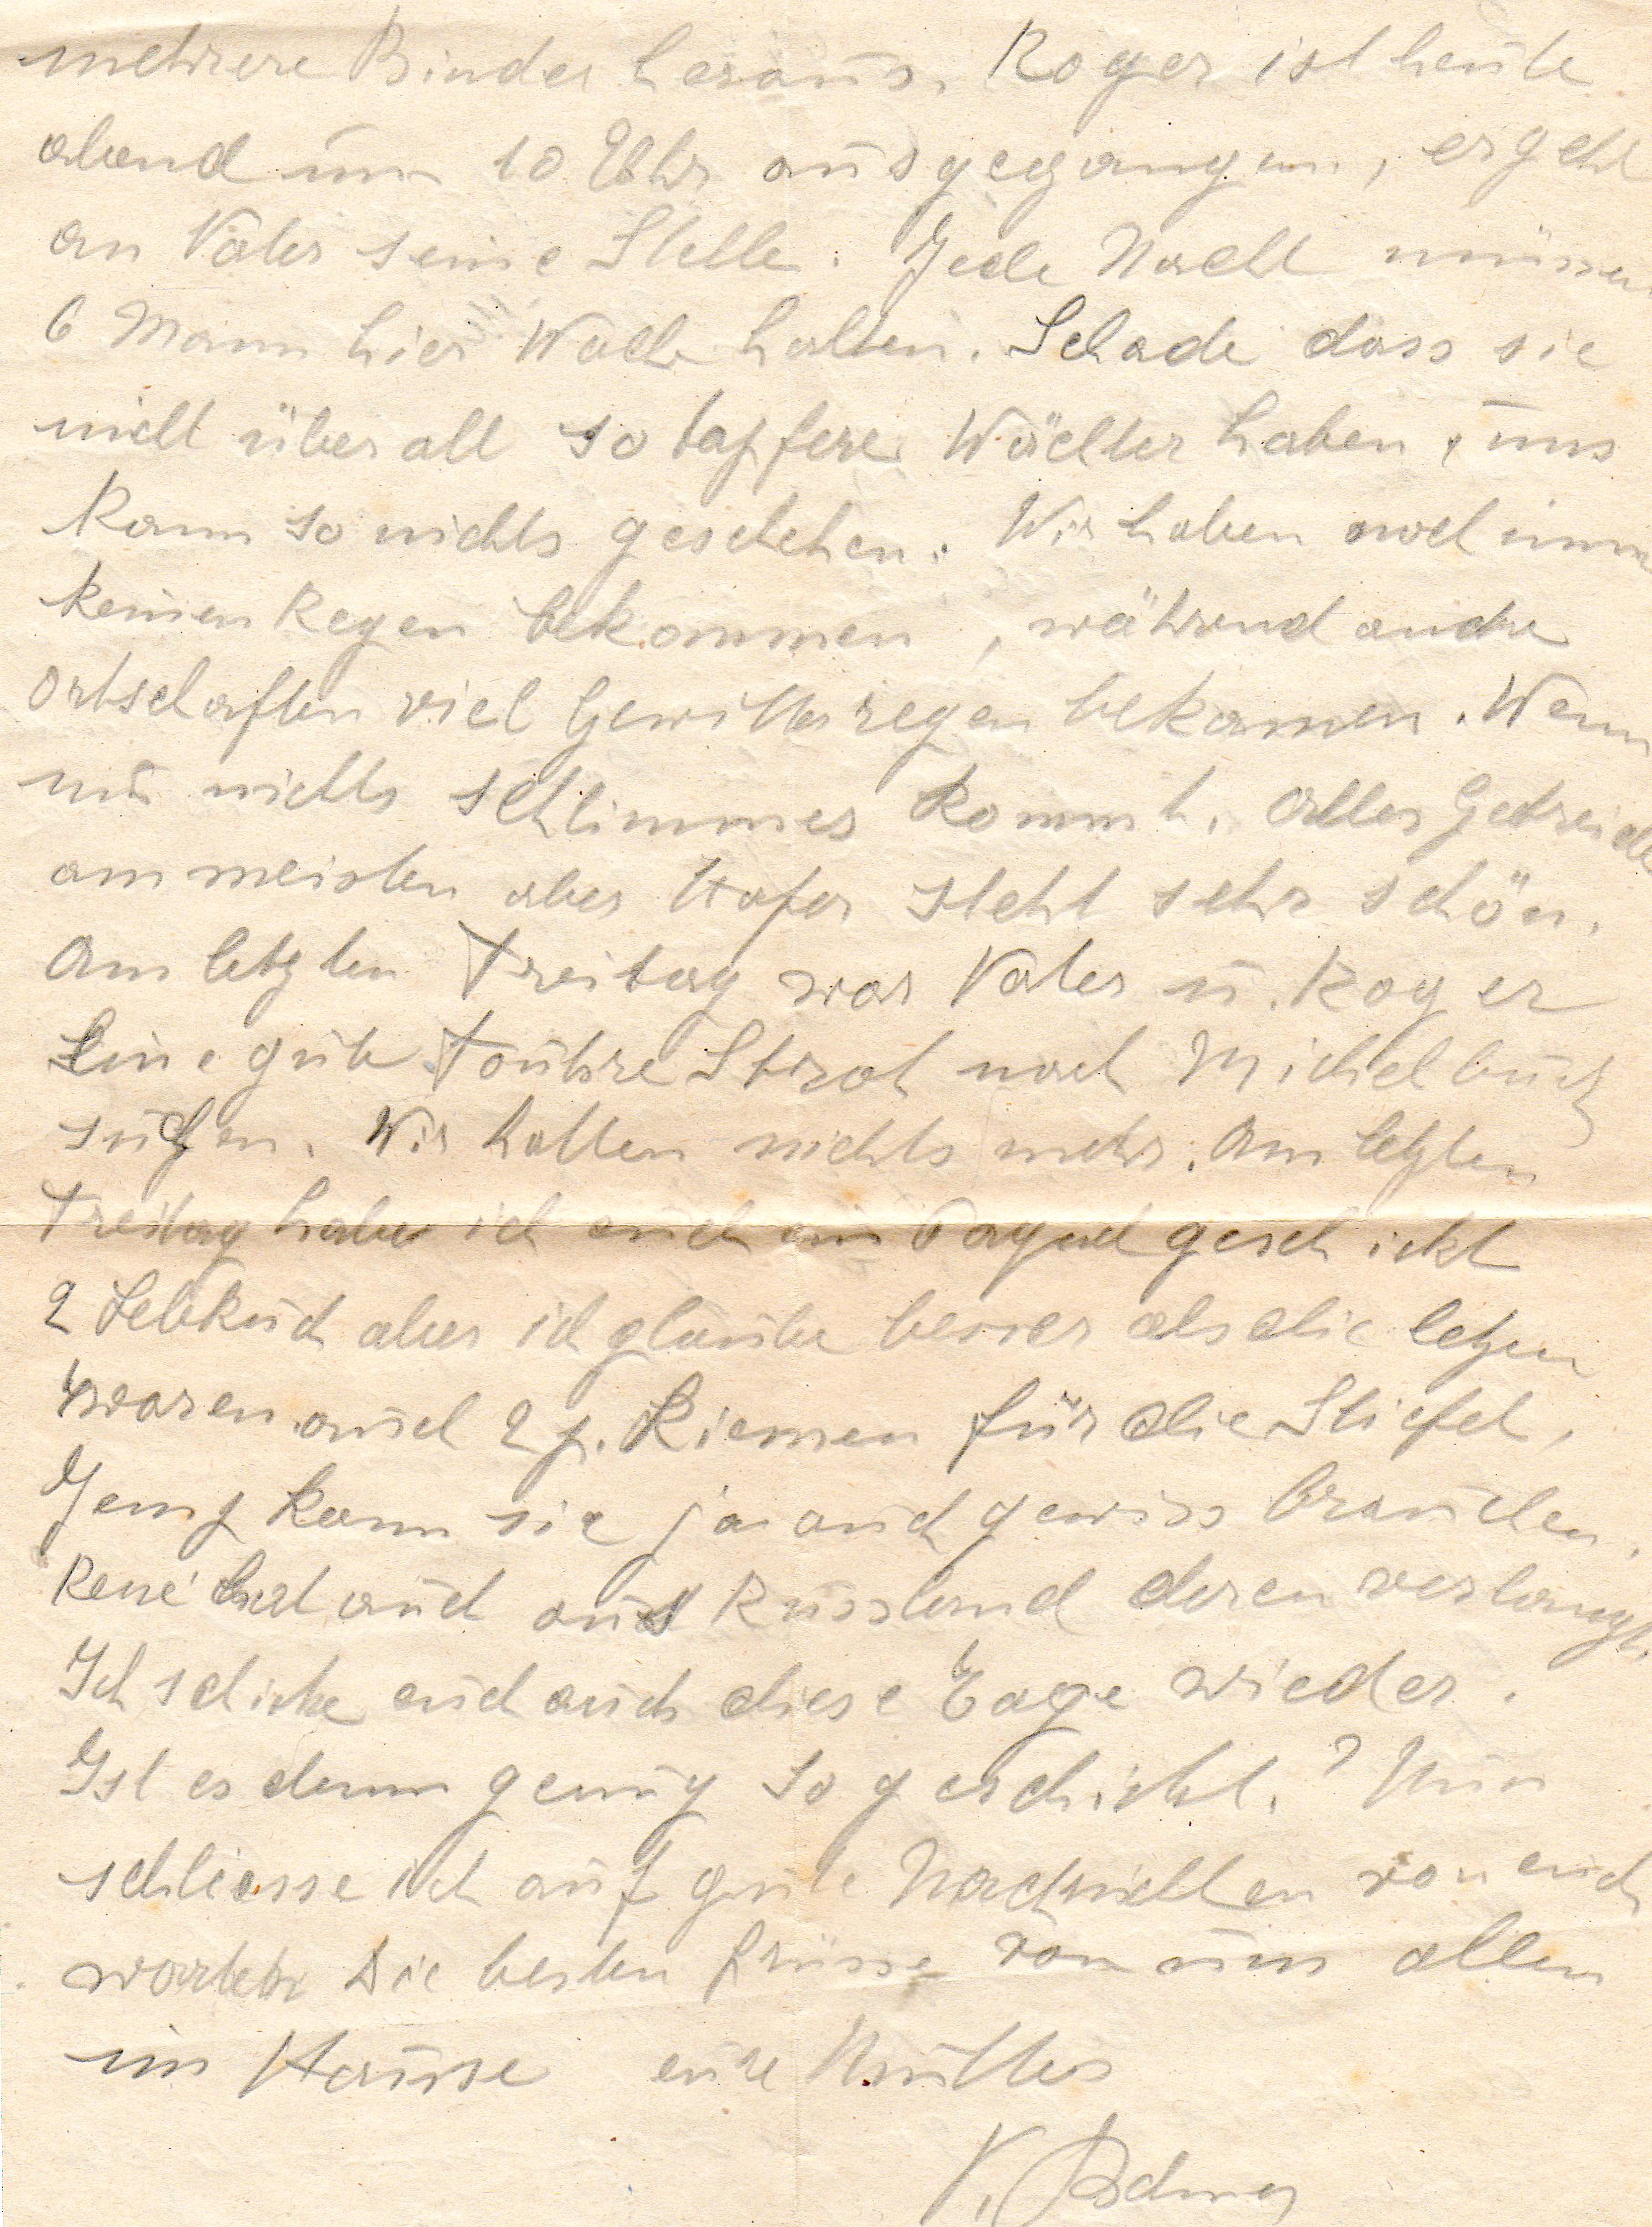 mehrere Binder heraus. Roger ist heute
abend um 10 Uhr ausgegangen, er geht
an Vater seine Stelle. Jede Nacht müssen
6 Mann hier Wache halten. Schade dass sie
nicht überall so tapfere Wächter haben, uns
kann so nichts geschehen. Wir haben noch immer
keinen Regen bekommen, während andre
Ortschaften viel Gewitterregen bekamen. Wenn
nur nichts schlimmes kommt. Alles Getreide
am meisten aber Hafer steht sehr schön.
Am letzten Freitag war Vater u. Roger
eine gute Fouhre Stroh nach Michelbuch
suchen. Wir hatten nichts mehr. Am letzten
Freitag habe ich euch ein Paquet geschickt
2 Lebkuch aber ich glaube besser als die letzen
waren auch 2 p. Riemen für die Stiefel,
kann sie ja auch gewiss brauchen.
René hat auch aus Russland deren verlangt.
Ich schicke euch auch diese Tage wieder.
Ist es denn genug so geschickt.? Nun
schliesse ich auf gute Nachrichten von euch
wartend Die besten Grüsse von uns allen
im Hause eure Mutter
V.